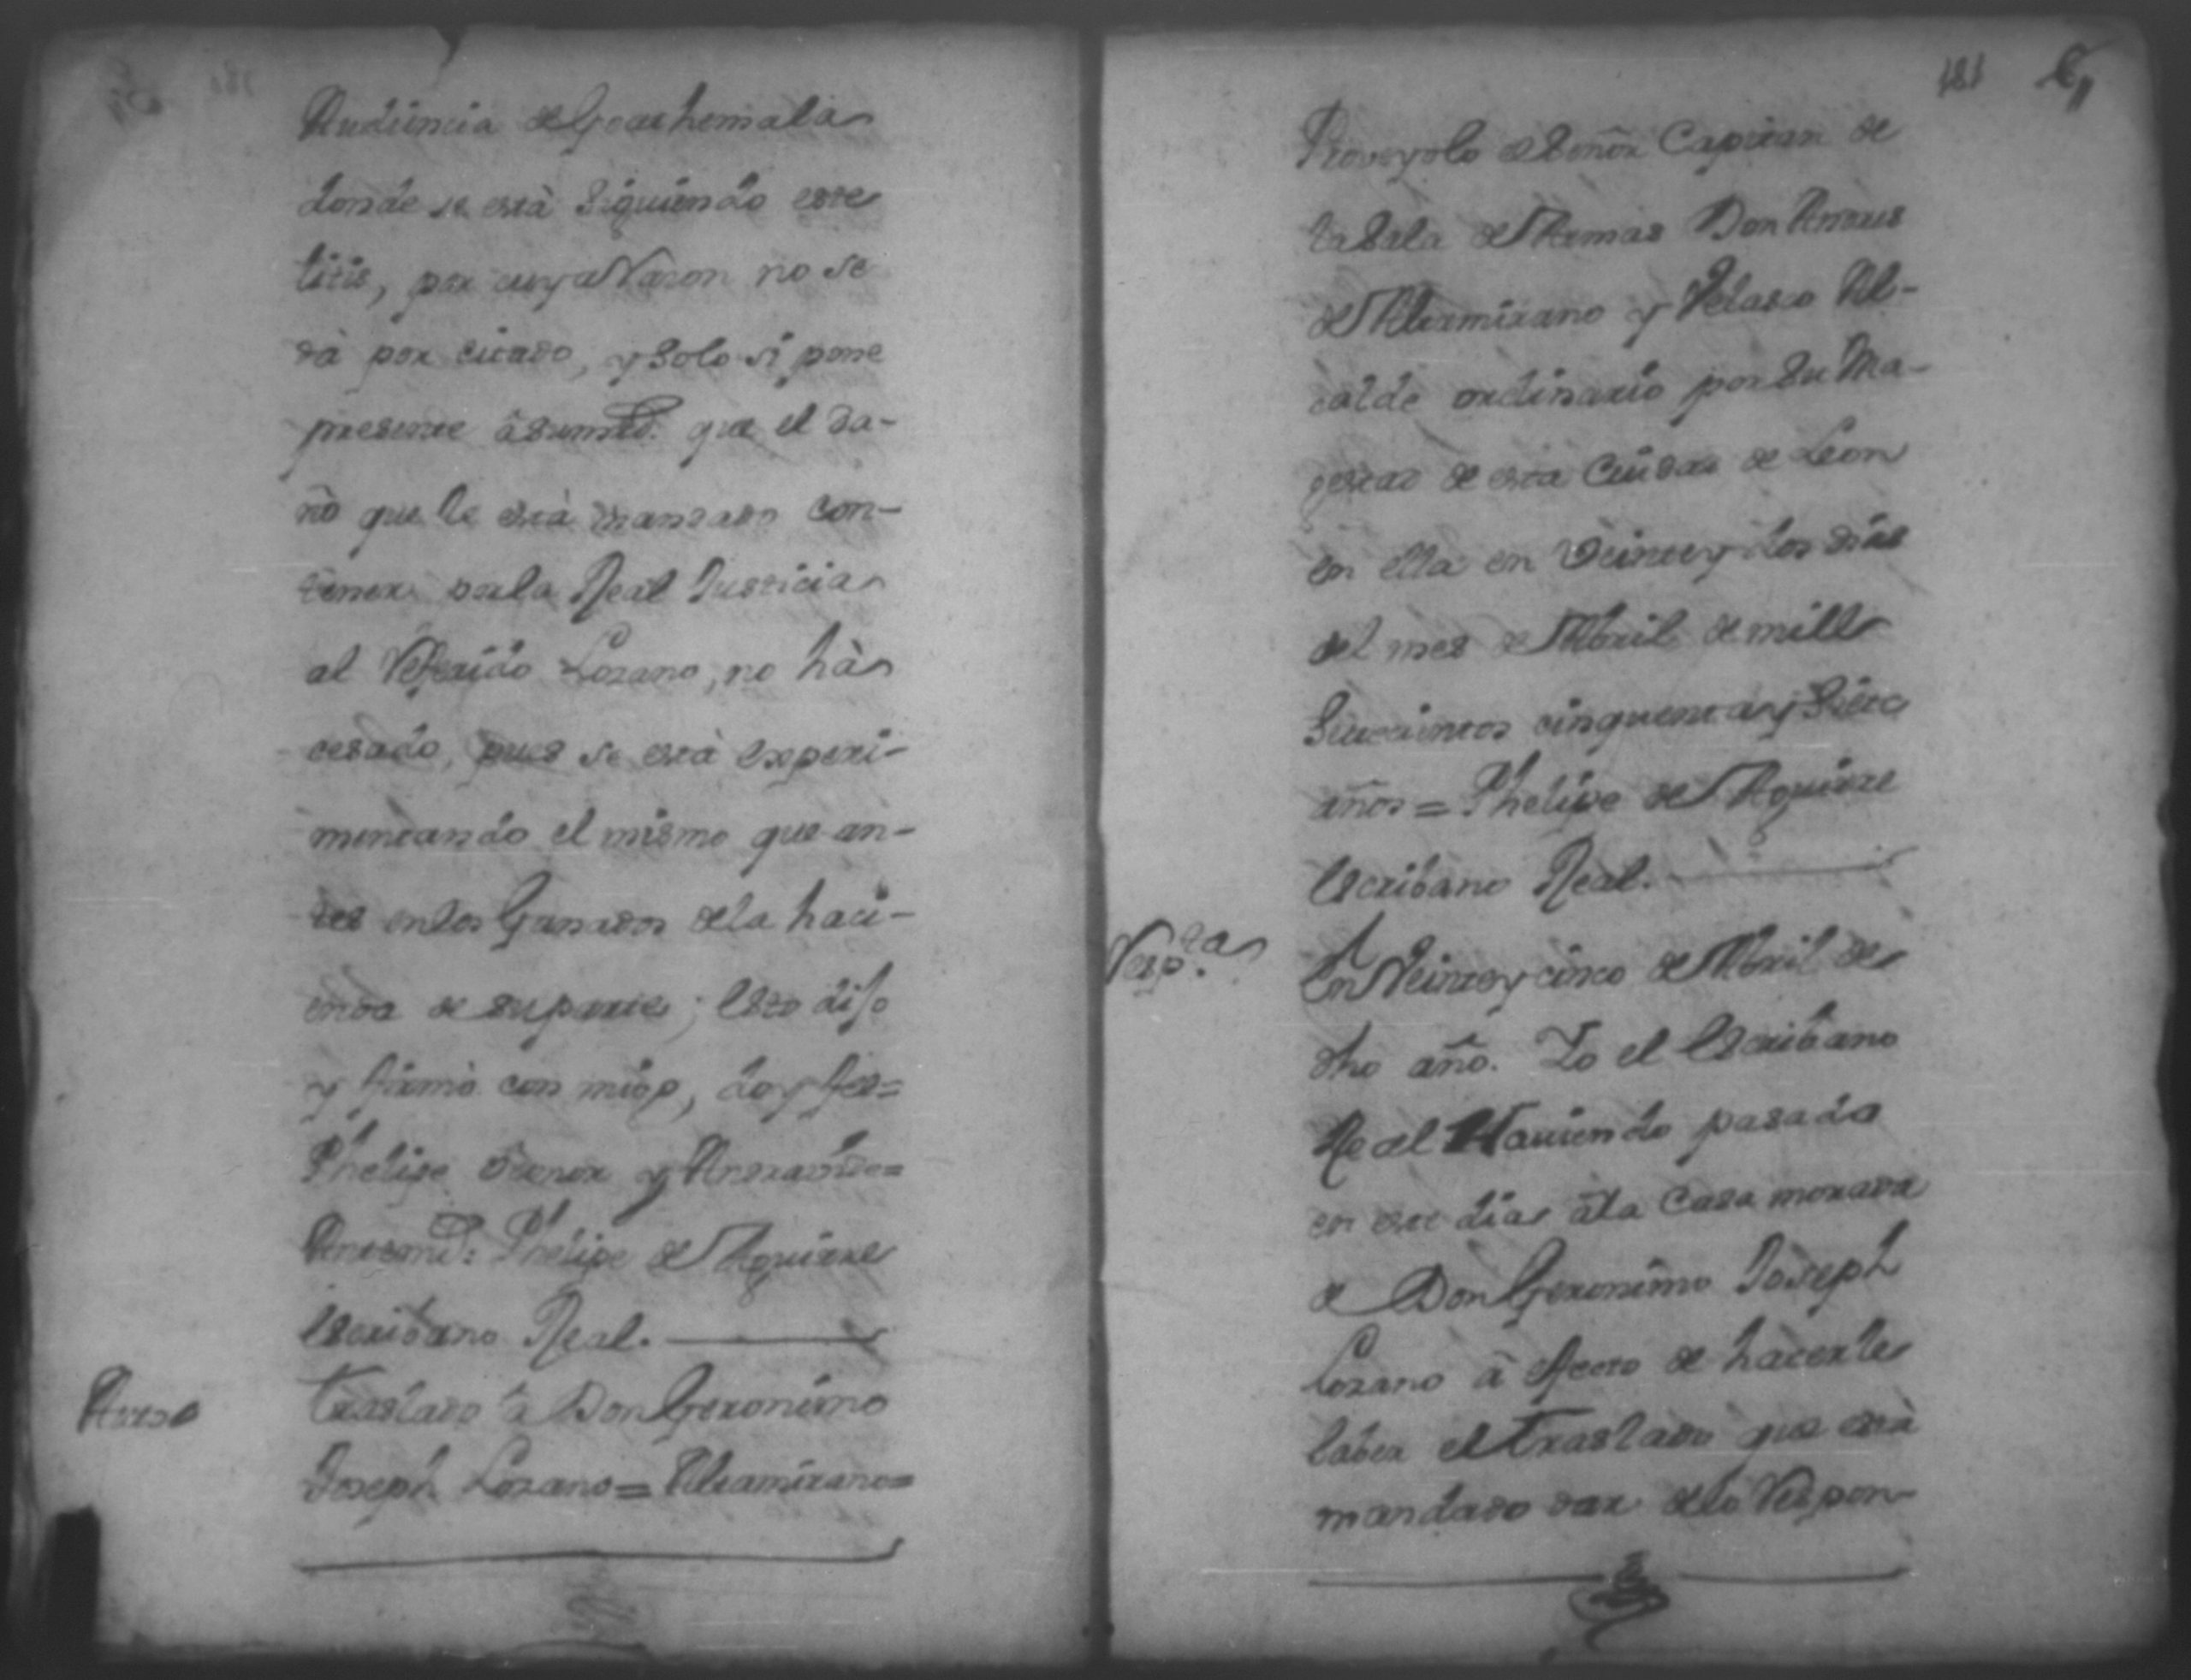 Audiencia de Goathemala
donde se està siguiendo este
litis, por cuya Razon no se
dà por citado, y solo si pone
presente â su md. que el da-
ño que le està mandado con-
tener por la Real Justicia
al Referido Lozano, no hà
cesado, pues se està experi-
mentando el mismo que an-
tes en los Ganados de la haci-
enda de su parte; esto dijo
y firmò con migo, doy fee=
Phelipe
Ante md: Phelipe de Aguirre
Escribano Real.
Auto
Traslado â Don Geronimo
Joseph Lozano = Altamirano=
181
Proveyolo el Señor Capitan de
la Sala de Armas Don
de Altamirano y Velasco Al-
calde ordinario por su Ma-
gestad de esta Ciudad de Leon
en ella en veinte y dos dias
del mes de Abril de mill
Setecientos cinquenta y Siete
años = Phelipe de Aguirre
Escribano Real.
Resp.ta
En Veinte y cinco de Abril de
dho año. Yo el Escribano
Real Haviendo pasado
en este dia â la Casa morada
de Don Geronimo Joseph
Lozano â efecto de hacerle
saber el Traslado que està
mandado dar de lo Respon-